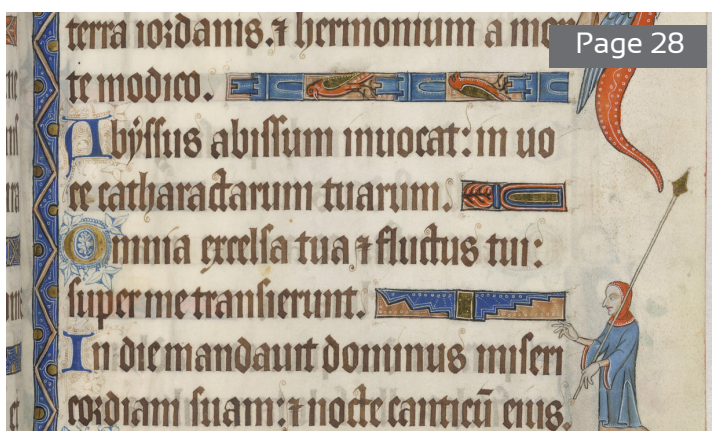 Page 28
terra iordanis. ⁊ hermonium a mon
te modico.
Abyssus abissum inuocat: in uo
ce catharactarum tuarum.
Omnia excelsa tua ⁊ fluctus tui:
super me transierunt.
In die mandauit dominus miseri
cordiam suam: ⁊ nocte canticū eius.